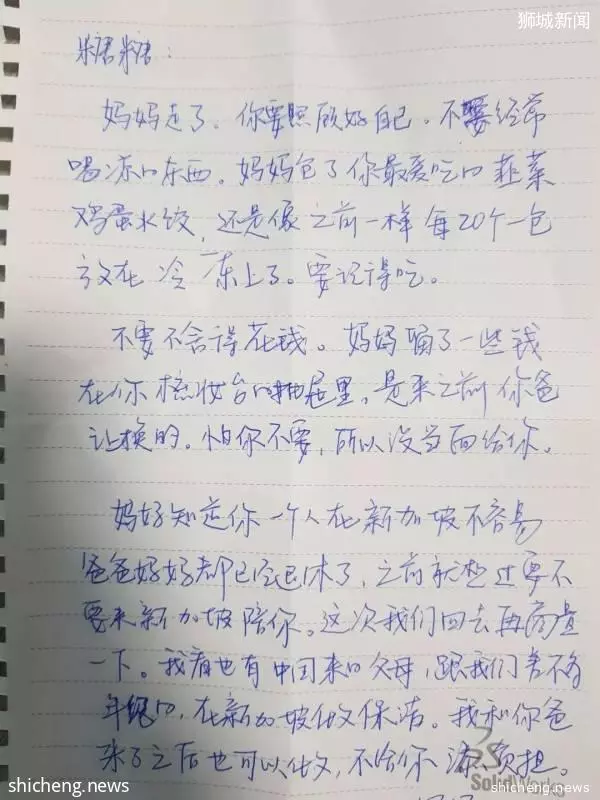 狮城新闻
糖糖：
妈妈走了。你要照顾好自己。不要经常
喝冻的东西。妈妈包了你最爱吃的韭菜
鸡蛋水饺，还是像之前一样每20个一包
放在冷冻上了。要记得吃。
不要不舍得花钱。妈妈留了一些钱
在你梳妆台的抽屉里，是来之前你爸
让换的。怕你不要，所以没当面给你。
妈妈知道你一个人在新加坡不容易
爸爸妈妈都已经退休了，之前就想过要不
要来新加坡陪你。这次我们回去再商量
一下。我看也有中国来的父母，跟我们差不多
年纪的，在新加坡做保洁。我和你爸
来了之后也可以做，不给你添负担。
SolidWorks
shicheng.news
shicheng.news